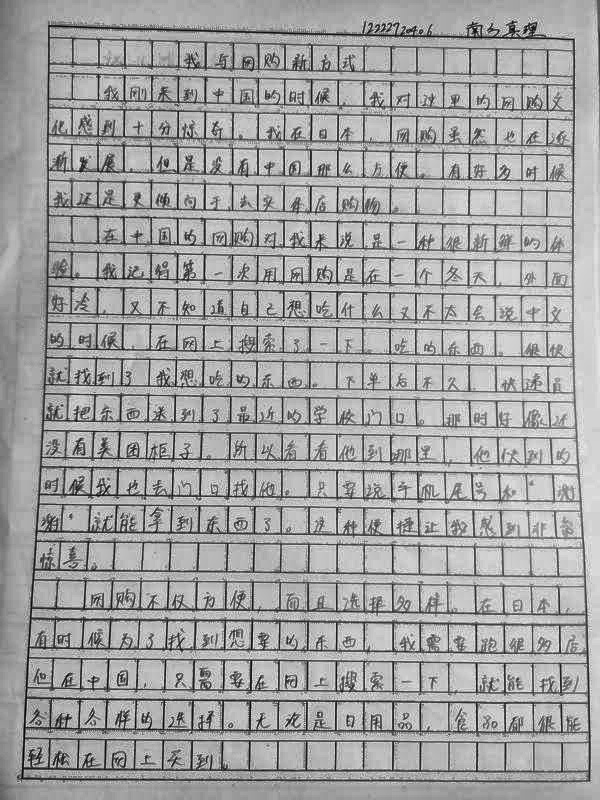 1222720406 南乃真理
我与网购新方式
我刚来到中国的时候，我对这里的网购文
化感到十分惊奇。我在日本，网购虽然也在逐
渐发展，但是没有中国那么方便。有好多时候
我还是更倾向于去实体店购物。
在中国的网购对我来说是一种很新鲜的体
验。我记得第一次用网购是在一个冬天，外面
好冷，又不知道自己想吃什么又不太会说中文
的时候，在网上搜索了一下。吃的东西。很快
就找到了我想吃的东西。下单后不久，快递员
就把东西送到了最近的学校门口。那时好像还
没有美团柜子。所以看看他到哪里，他快到的
时候我也去门口找他。只要说手机尾号和“谢
谢”就能拿到东西了。这种便捷让我感到非常
惊喜。
网购不仅方便，而且选择多样。在日本，
有时候为了找到想要的东西，我需要跑很多店，
但在中国，只需要在网上搜索一下，就能找到
各种各样的选择。无论是日用品，食品都很能
轻松在网上买到。